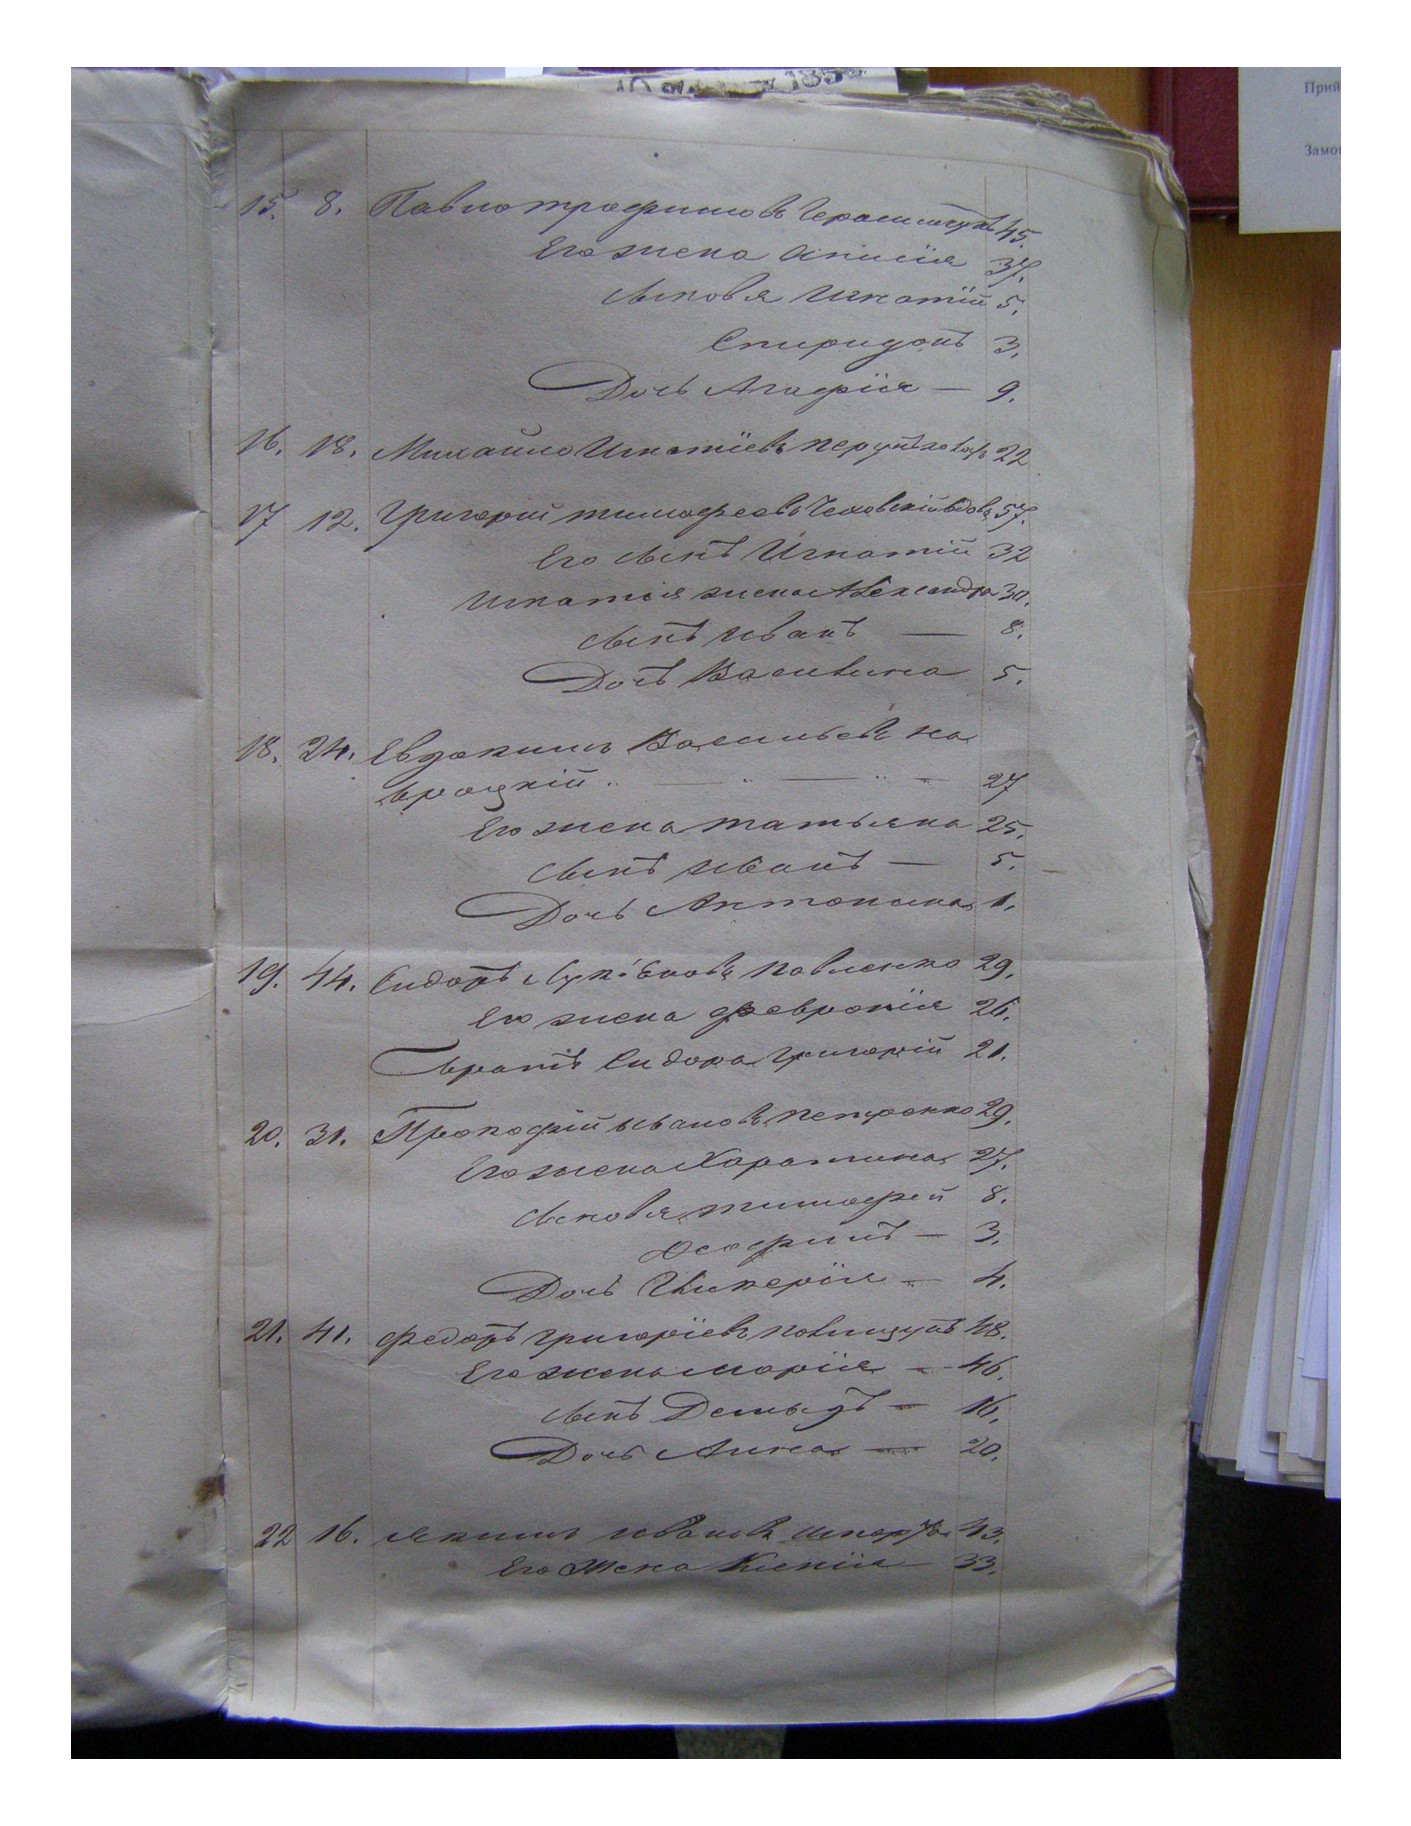 Прий
Замов
15. 8. Павло трофимовъ Герасимчукъ 45.
Его жена Анисія 37.
Сыновья Игнатій 5.
Спиридонъ 3.
Дочь Агафія — 9.
16. 18. Михайло Игнатіевъ 22
17 12. Григорій тимофеевъ Чеховскій вдовъ 57.
Его сынъ Игнатій 32
Игнатія жена Александра 30.
сынъ Иванъ — 8.
Дочь Василина 5.
18. 24. Евдокимъ Васильевъ на
вроцкій 27
Его жена татьяна 25.
сынъ Иванъ — 5.
Дочь Антонина 1.
19. 44. Сидоръ Лукьяновъ павленко 29.
Его жена февронія 26.
братъ Сидора григорій 21.
20. 31. Прокофій Ивановъ петренко 29.
Его жена Харатина 27.
Сыновья тимофей 8.
Феофилъ — 3.
Дочь Гликерія — 4.
21. 41. федоръ григоріевъ 48.
Его жена марія — 46.
сынъ Демидъ — 16.
Дочь Анна — 20.
22 16. Якимъ Ивановъ 43.
Его жена Ксенія — 33.